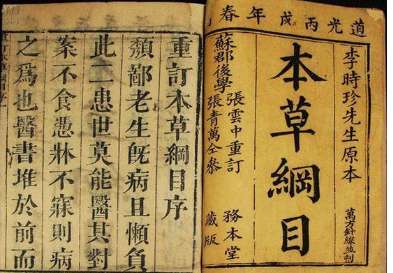 道光丙戌年春
李時珍先生原本
萬方針線
本草綱目
蘇郡後學
張雲中重訂
張青萬全參
務本堂
藏版
重訂本草綱目序
頽鄙老生既病且懶負
此二患世莫能醫其對
案不食憑牀不寐則病
之爲也醫書堆於前而